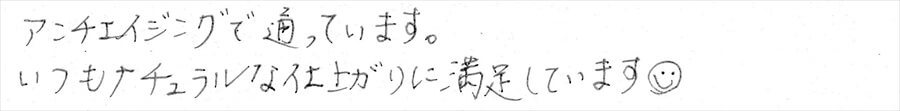 アンチエイジングで通っています。
いつもナチュラルな仕上がりに満足しています☺